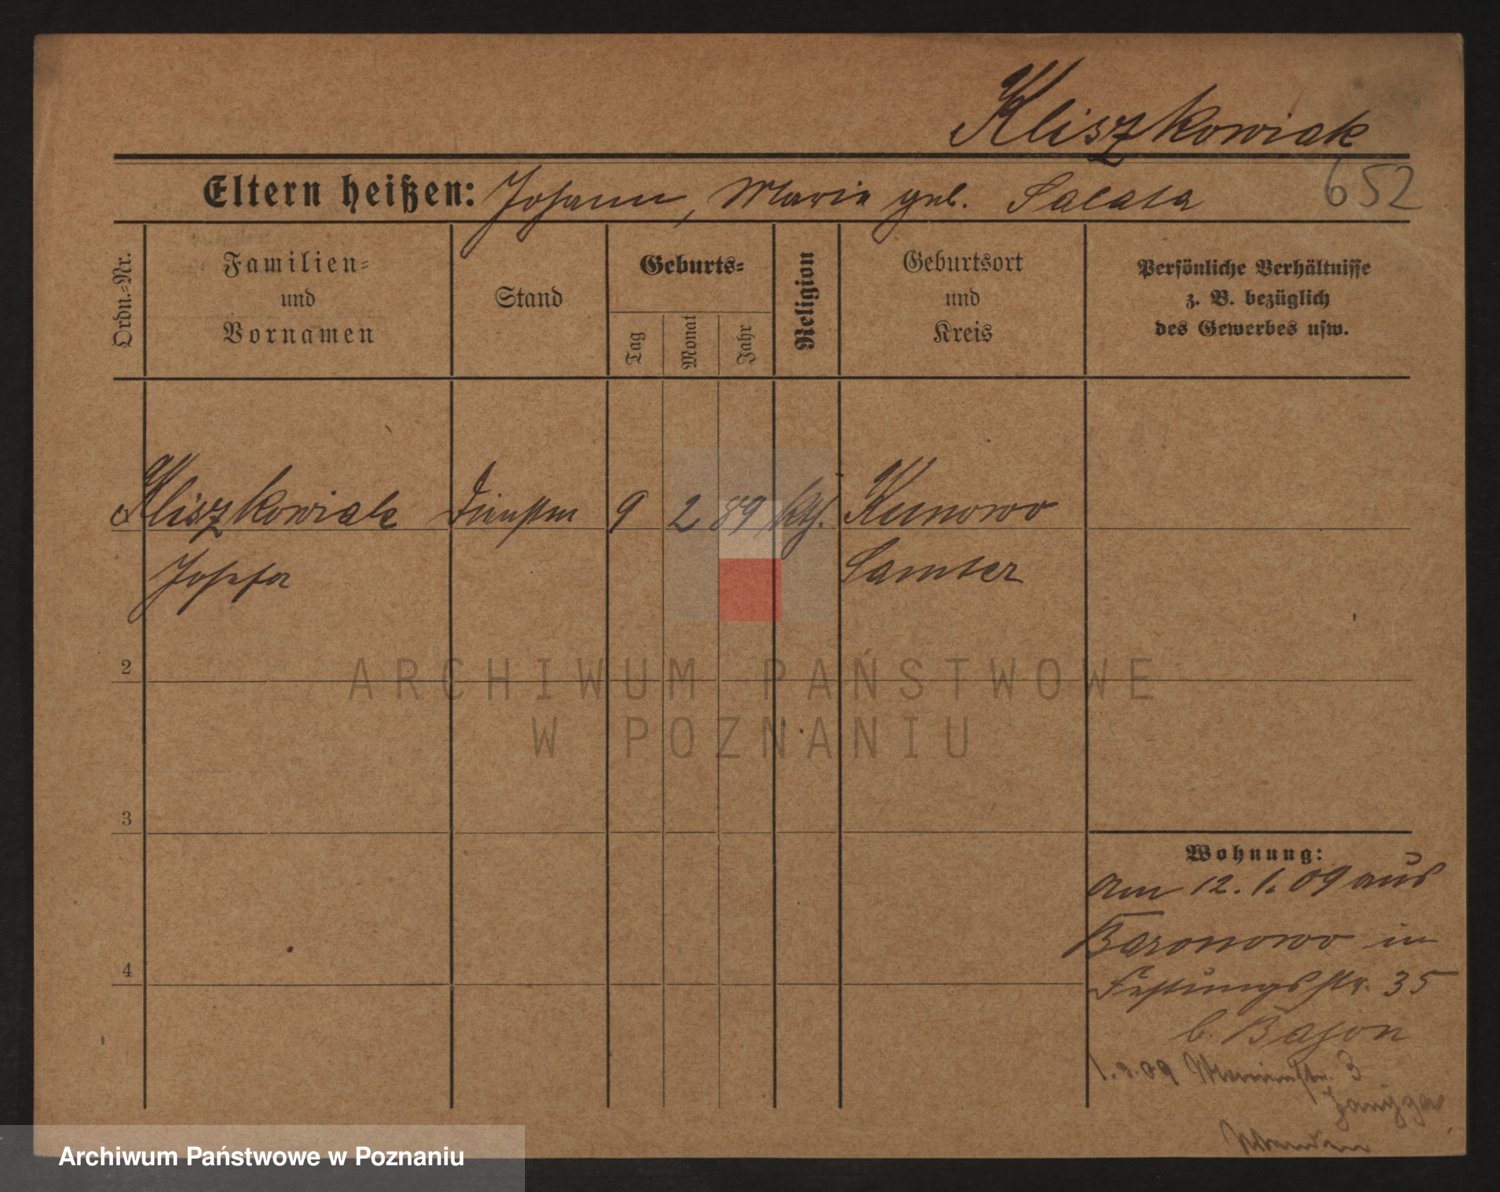 Kliszkowiak
Eltern heißen: Johann, Marie geb. Salata
652
Ordn.=Nr.
Familien=
und
Vornamen
Stand
Geburts=
Tag
Monat
Jahr
Religion
Geburtsort
und
Kreis
Persönliche Verhältnisse
z. B. bezüglich
des Gewerbes usw.
Kliszkowiak
Josefa
9 2 89 kth.
Kunowo
Samter
2
3
4
Wohnung:
am 12. 1. 09 aus
Baronowo in
Festungsstr. 35
b. Bajon
1. 3. 09
3
ARCHIWUM PAŃSTWOWE
W POZNANIU
Archiwum Państwowe w Poznaniu